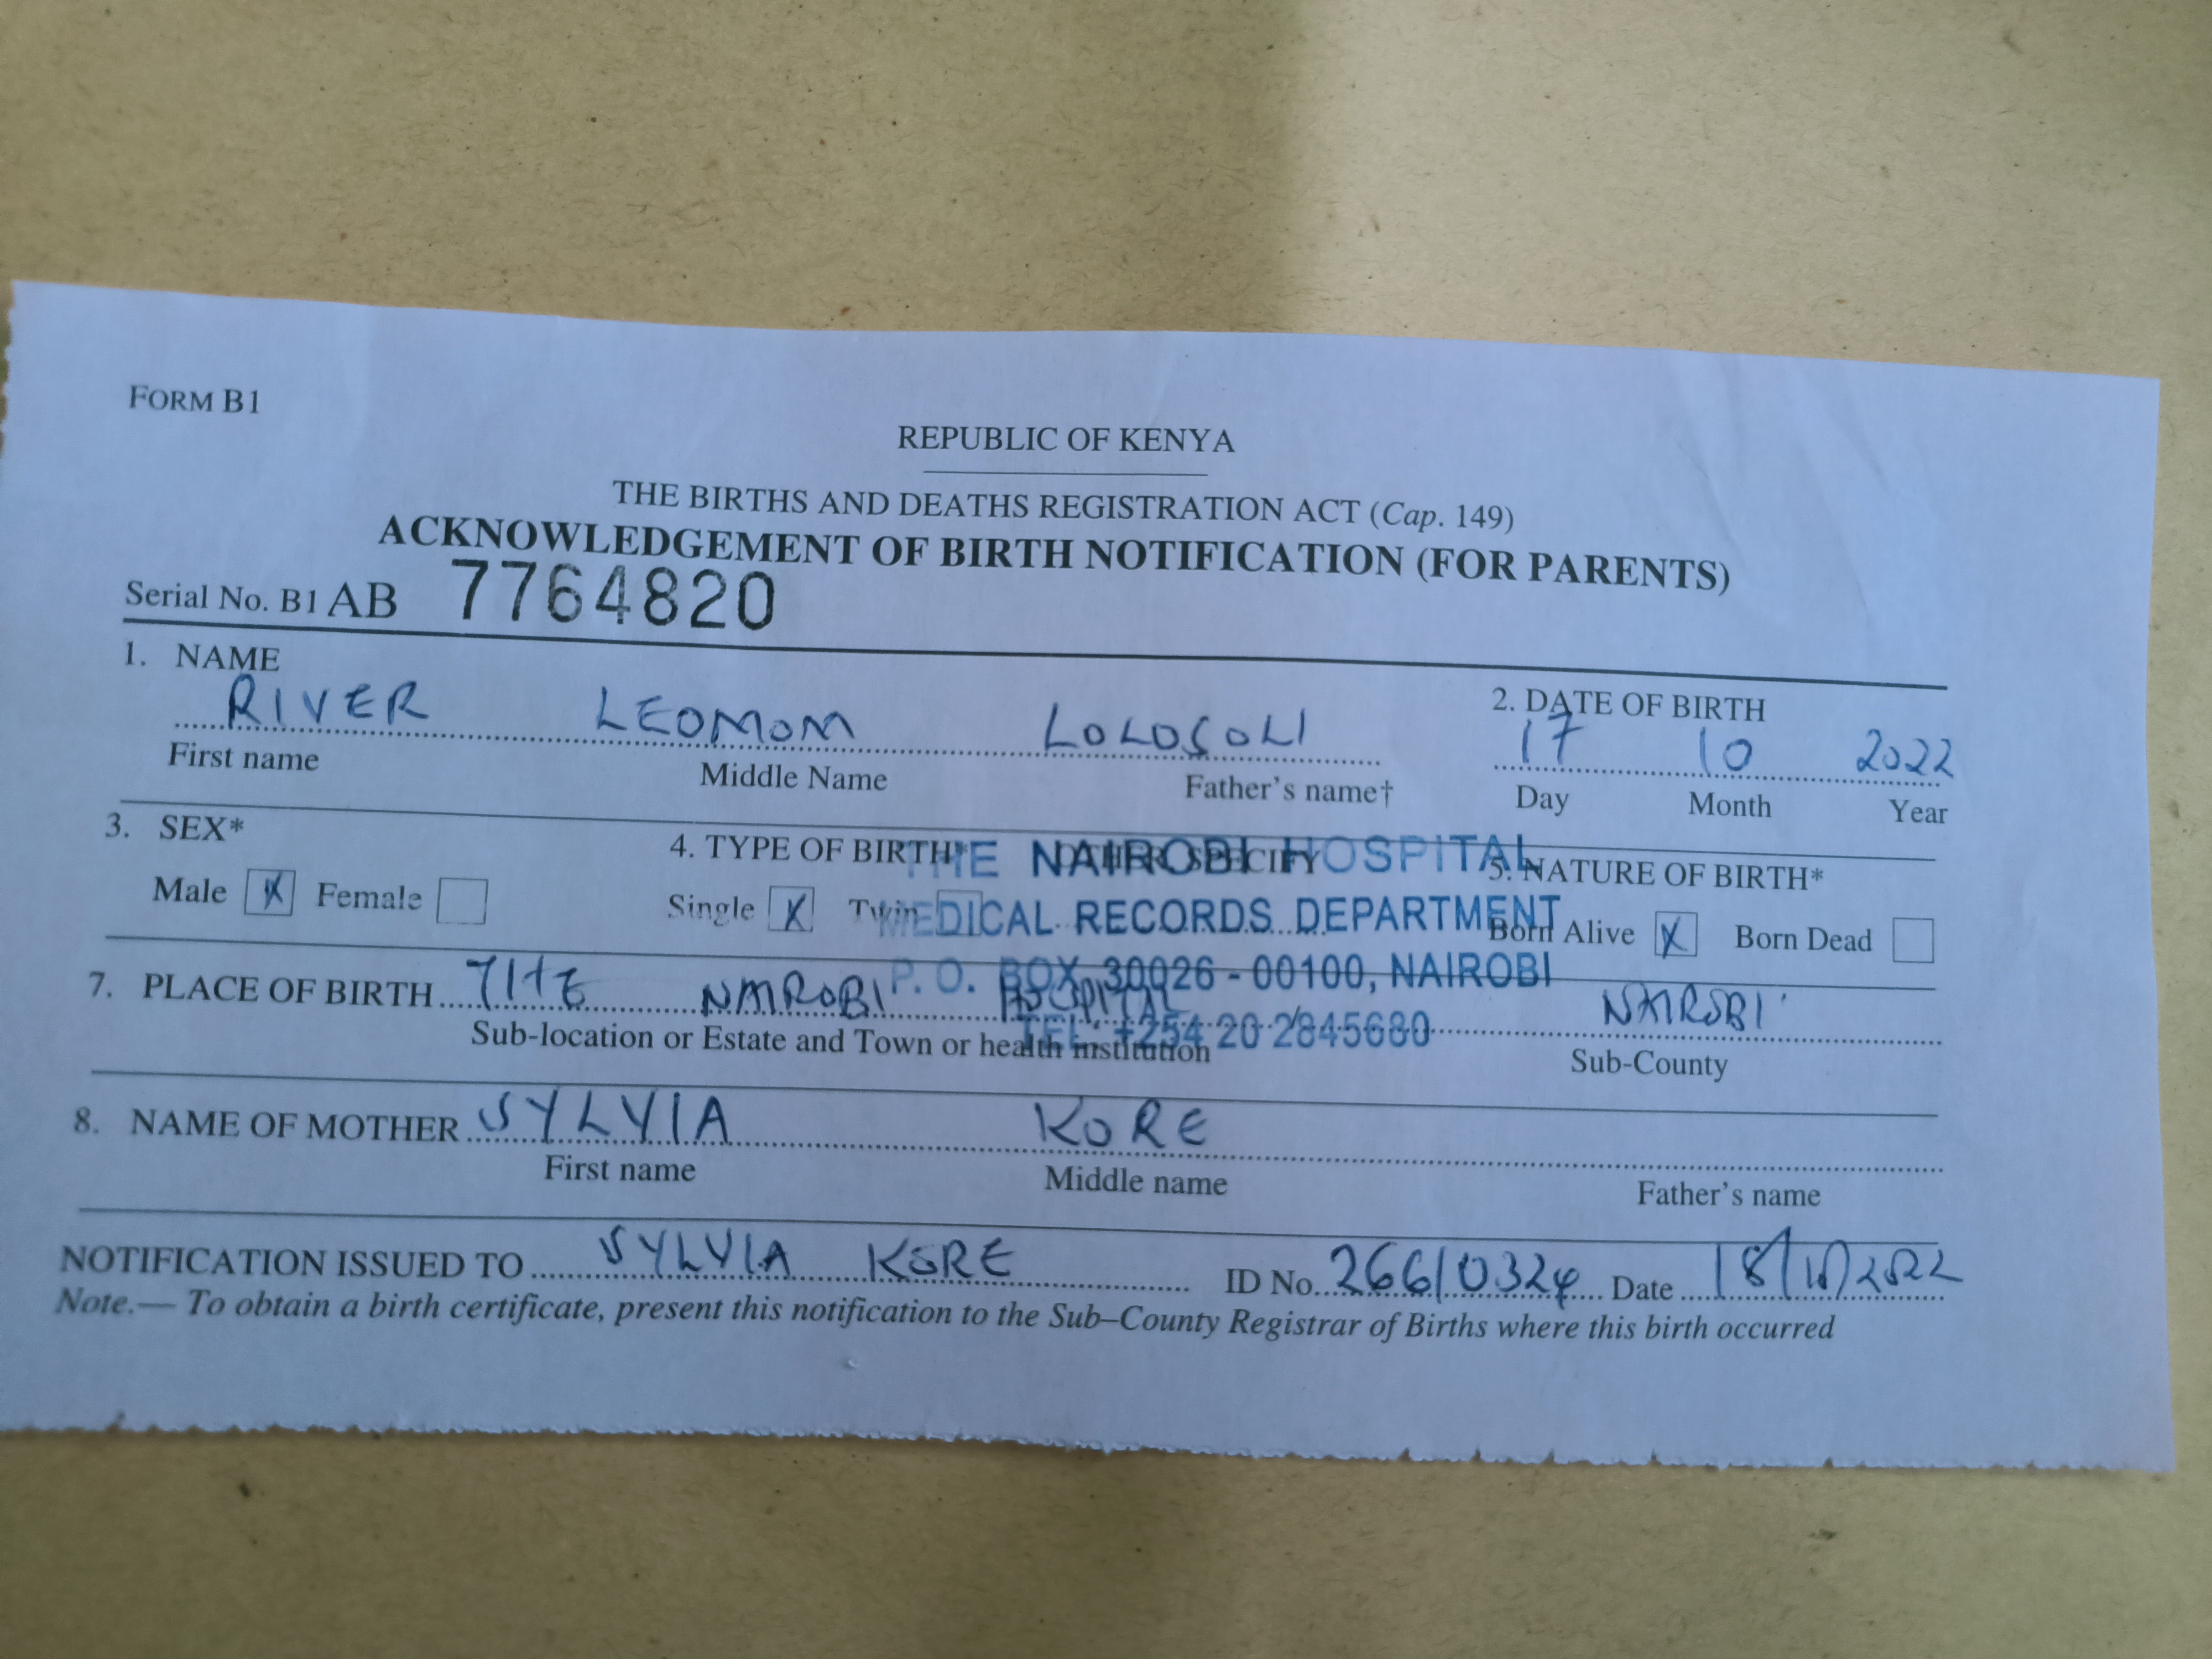 FORM B1
REPUBLIC OF KENYA
THE BIRTHS AND DEATHS REGISTRATION ACT (Cap. 149)
ACKNOWLEDGEMENT OF BIRTH NOTIFICATION (FOR PARENTS)
Serial No. B1 AB 7764820
1. NAME
RIVER LEOMOM LOLOSOLI
First name Middle Name Father's name†
2. DATE OF BIRTH
17 10 2022
Day Month Year
3. SEX*
Male X Female
4. TYPE OF BIRTH* OTHER SPECIFY
Single X Twin
5. NATURE OF BIRTH*
Born Alive X Born Dead
THE NAIROBI HOSPITAL
MEDICAL RECORDS DEPARTMENT
P. O. BOX 30026 - 00100, NAIROBI
TEL: +254 20 2845680
7. PLACE OF BIRTH THE NAIROBI HOSPITAL NAIROBI
Sub-location or Estate and Town or health institution Sub-County
8. NAME OF MOTHER SYLVIA KORE
First name Middle name Father's name
NOTIFICATION ISSUED TO SYLVIA KORE ID No. 26610324 Date 18/10/2022
Note.— To obtain a birth certificate, present this notification to the Sub–County Registrar of Births where this birth occurred